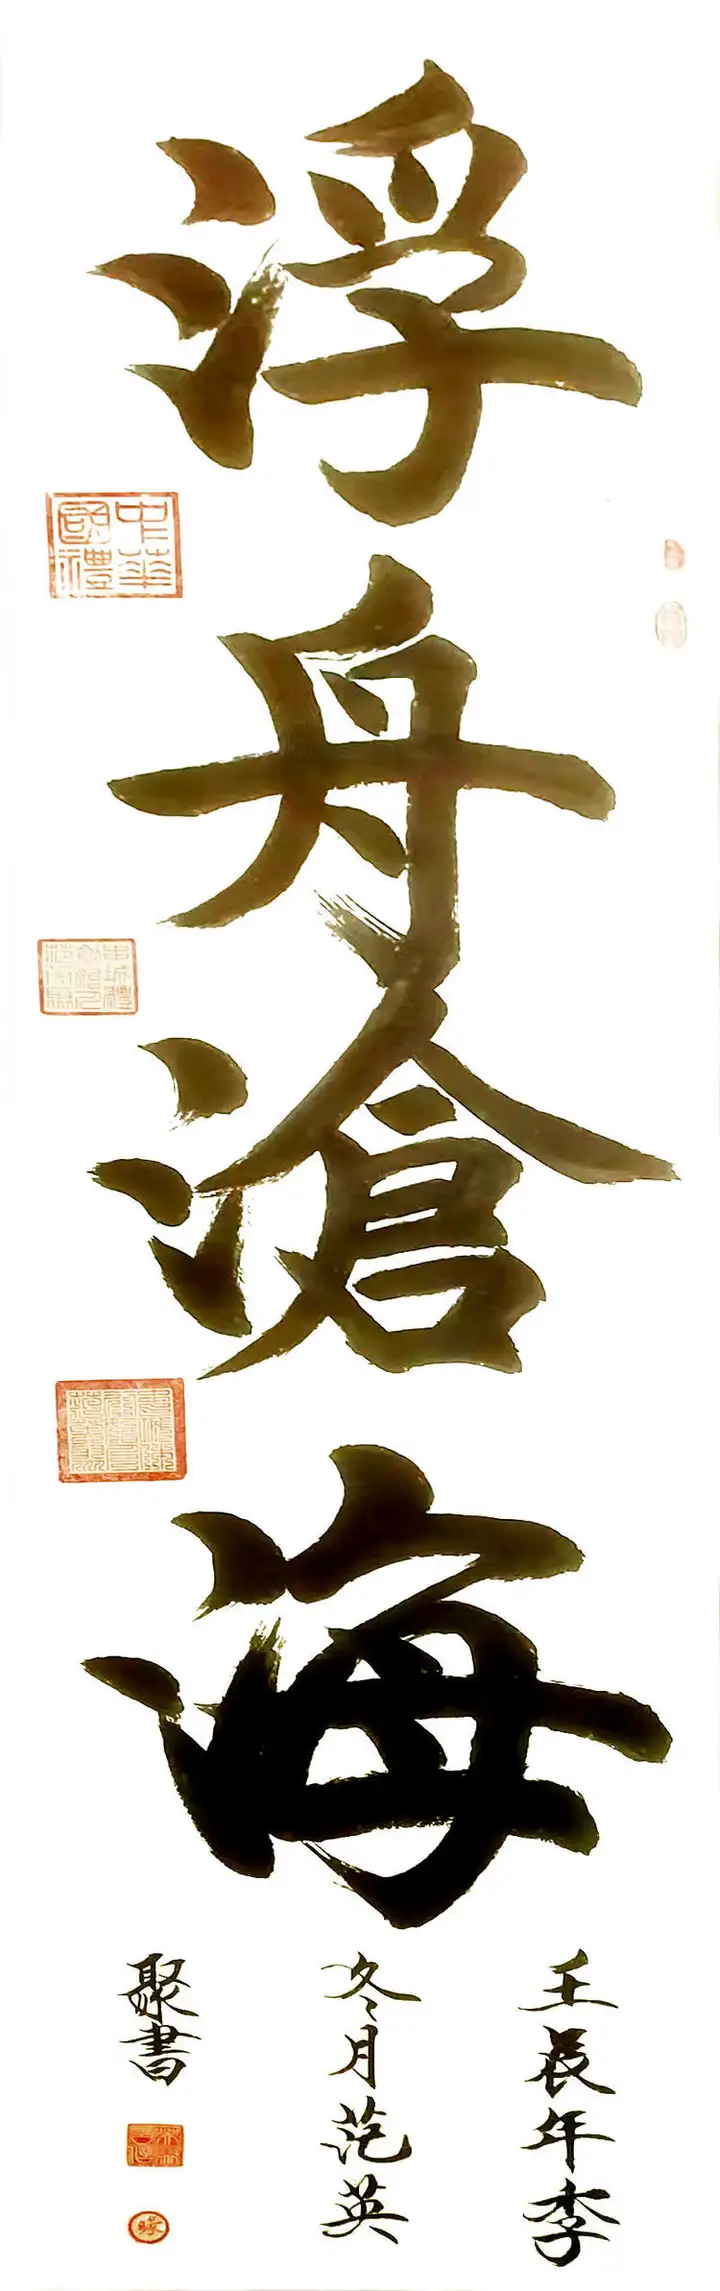 浮舟滄海
壬辰年李
冬月范英
聚書
中華
國禮